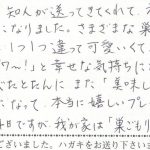 知人が送ってきてくれて、
になりました。さまざまな巣
1つ1つ違って可愛いくて
ワ〜!」と幸せな気持ちに
でたとたんに また「美味し
なって、本当に嬉しいプレ
日ですが、我が家は「巣ごもり
ございました。ハガキをお送り下さいま